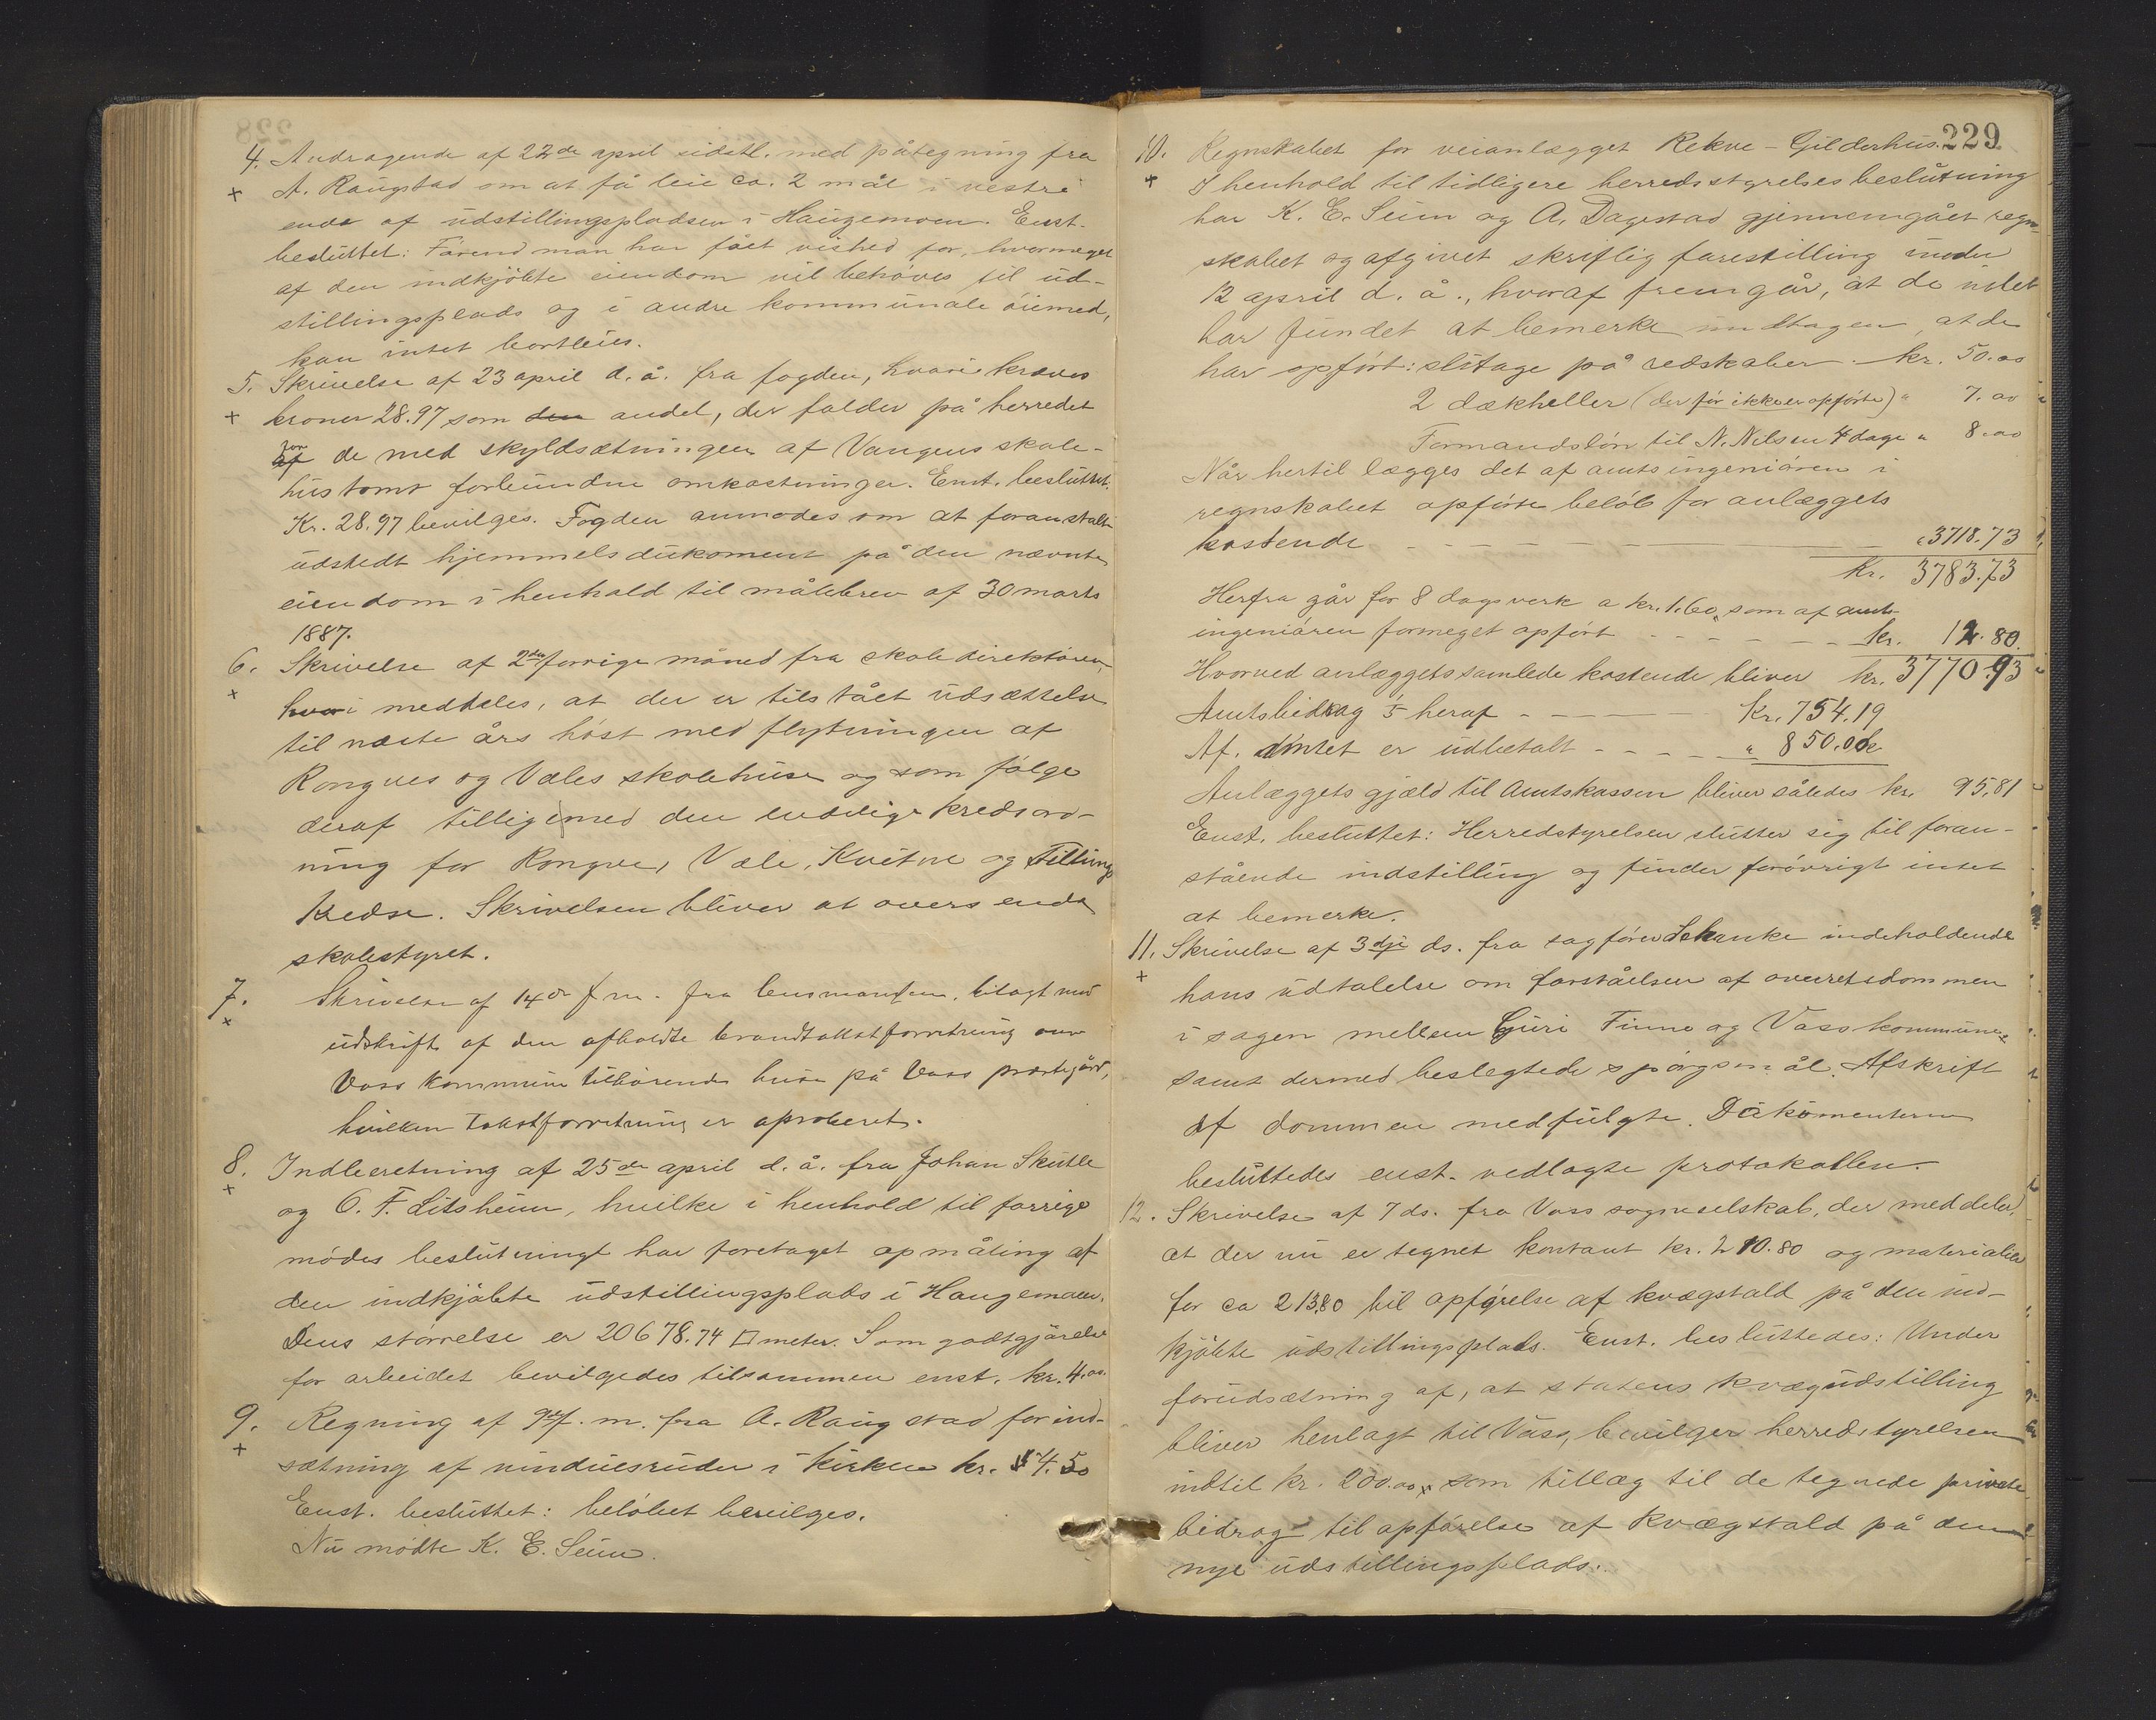 4. Andragende af 22de april sidstl. med påtegning fra
+ A. Raugstad om at få leie ca. 2 mål i vestre
ende af udstillingspladsen i Haugemoen. Enst.
besluttet: Førend man har fået vished for, hvormeget
af den indkjöbte eiendom vil behöves til ud-
stillingsplads og i andre kommunale öiemed,
kan intet bortleies.
5. Skrivelse af 23 april d. å. fra fogden, hvori kræves
+ kroner 28.97 som den andel, der falder på herredet
for
af de med skyldsætningen af Vangens skole-
hustomt forbundne omkostninger. Enst. besluttet.
Kr. 28.97 bevilges. Fogden anmodes om at foranstalte
udstedt hjemmelsdukoment på den nævnte
eiendom i henhold til målebrev af 30 marts
1887.
6. Skrivelse af 2den forrige måned fra skoledirektören,
+ hvori meddeles, at der er tilstået udsættelse
til næste års höst med flytningen af
Rongves og Væles skolehuse og som fölge
deraf tilligemed den endelige kredsord-
ning for Rongve, Væle, Kvitne og Tillung
Kredse. Skrivelsen bliver at oversende
skolestyret.
7. Skrivelse af 14de f.m. fra lensmanden, bilagt med
+ udskrift af den afholdte brandtakstforretning over
Voss kommune tilhørende huse på Voss prestegård,
hvilken takstforretning er aproberet.
8. Indberetning af 25de april d. å. fra Johan Skutle
+ og O. F. Litsheim, hvilke i henhold til forrige
mödes beslutningt har foretaget opmåling af
den indkjöbte udstillingsplads i Haugemoen.
Dens störrelse er 20678.74 □ meter. Som godtgjörelse
for arbeidet bevilgedes tilsammen enst. kr. 4.00.
9. Regning af 9de f. m. fra A. Raugstad for ind-
+ sætning af vinduesruder i kirken kr. 4.50
Enst. besluttet: belöbet bevilges.
Nu mödte K. E. Seim.
229
10. Regnskabet for veianlægget Rekve - Gilderhus.
+ I henhold til tidligere herredsstyrelsesbeslutning
har K. E. Seim og A. Dagestad gjennemgået regn-
skabet og afgivet skriftlig forestilling under
12 april d. å., hvoraf fremgår, at de intet
har fundet at bemerke undtagen, at de
har opfört: slitage på redskaber kr. 50.00
2 dækheller (der för ikke er opförte) " 7.00
Formandslön til N. Nilsen 4 dage " 8.00
Når hertil lægges det af amtsingeniören i
regnskabet opförte belöb for anlæggets
kostende - - - - - " 3718.73
Kr. 3783.73
Herfra går for 8 dagsverk a kr. 1.60, som af amts-
ingeniören formeget opfört - - - - - kr. 12.80.
Hvorved anlæggets samlede kostende bliver kr. 3770.93
Amtsbidrag 1/5 heraf - - - Kr. 754.19
Af. Amtet er udbetalt - - - - " 850.00
Anlæggets gjæld til Amtskassen bliver således kr. 95.81
Enst. besluttet: Herredstyrelsen slutter sig til foran-
stående indstilling og finder forövrigt intet
at bemerke.
11. Skrivelse af 3dje ds. fra sagförer Schanke indeholdende
+ hans udtalelse om forståelsen af overretsdommen
i sagen mellem Guri Finne og Voss kommune
samt dermed beslegtede spörgsmål. Afskrift
af dommen medfulgte. Dokumenterne
besluttedes enst. vedlagte protokollen.
12. Skrivelse af 7 ds. fra Voss sogneselskab, der meddeler,
at der nu er tegnet kontant kr. 210.80 og materialier
for ca 213.80 til opförelse af kvægstald på den ind-
kjöbte udstillingsplads. Enst. besluttedes: Under
forudsætning af, at statens kvægudstilling
bliver henlagt til Voss, bevilger herredstyrelsen
indtil kr. 200.00, som tillæg til de tegnede private
bidrag til opförelse af kvægstald på den
nye udstillingsplads.